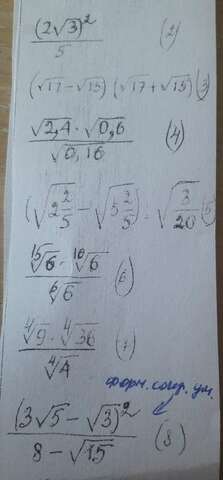 (2√3)² / 5 (2)
(√17 - √15) (√17 + √15) (3)
√2,4 · √0,6 / √0,16 (4)
(√2 2/5 - √5 2/5) : √3/20 (5
¹⁵√6 · ¹⁰√6 / ⁶√6 (6)
⁴√9 · ⁴√36 / ⁴√4 (7)
форм. сокр. ум.
(3√5 - √3)² / 8 - √15 (8)